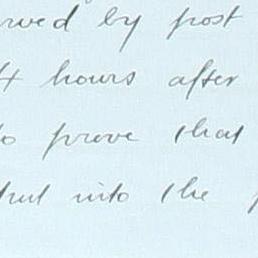 by post
4 hours after
to prove that
put into the